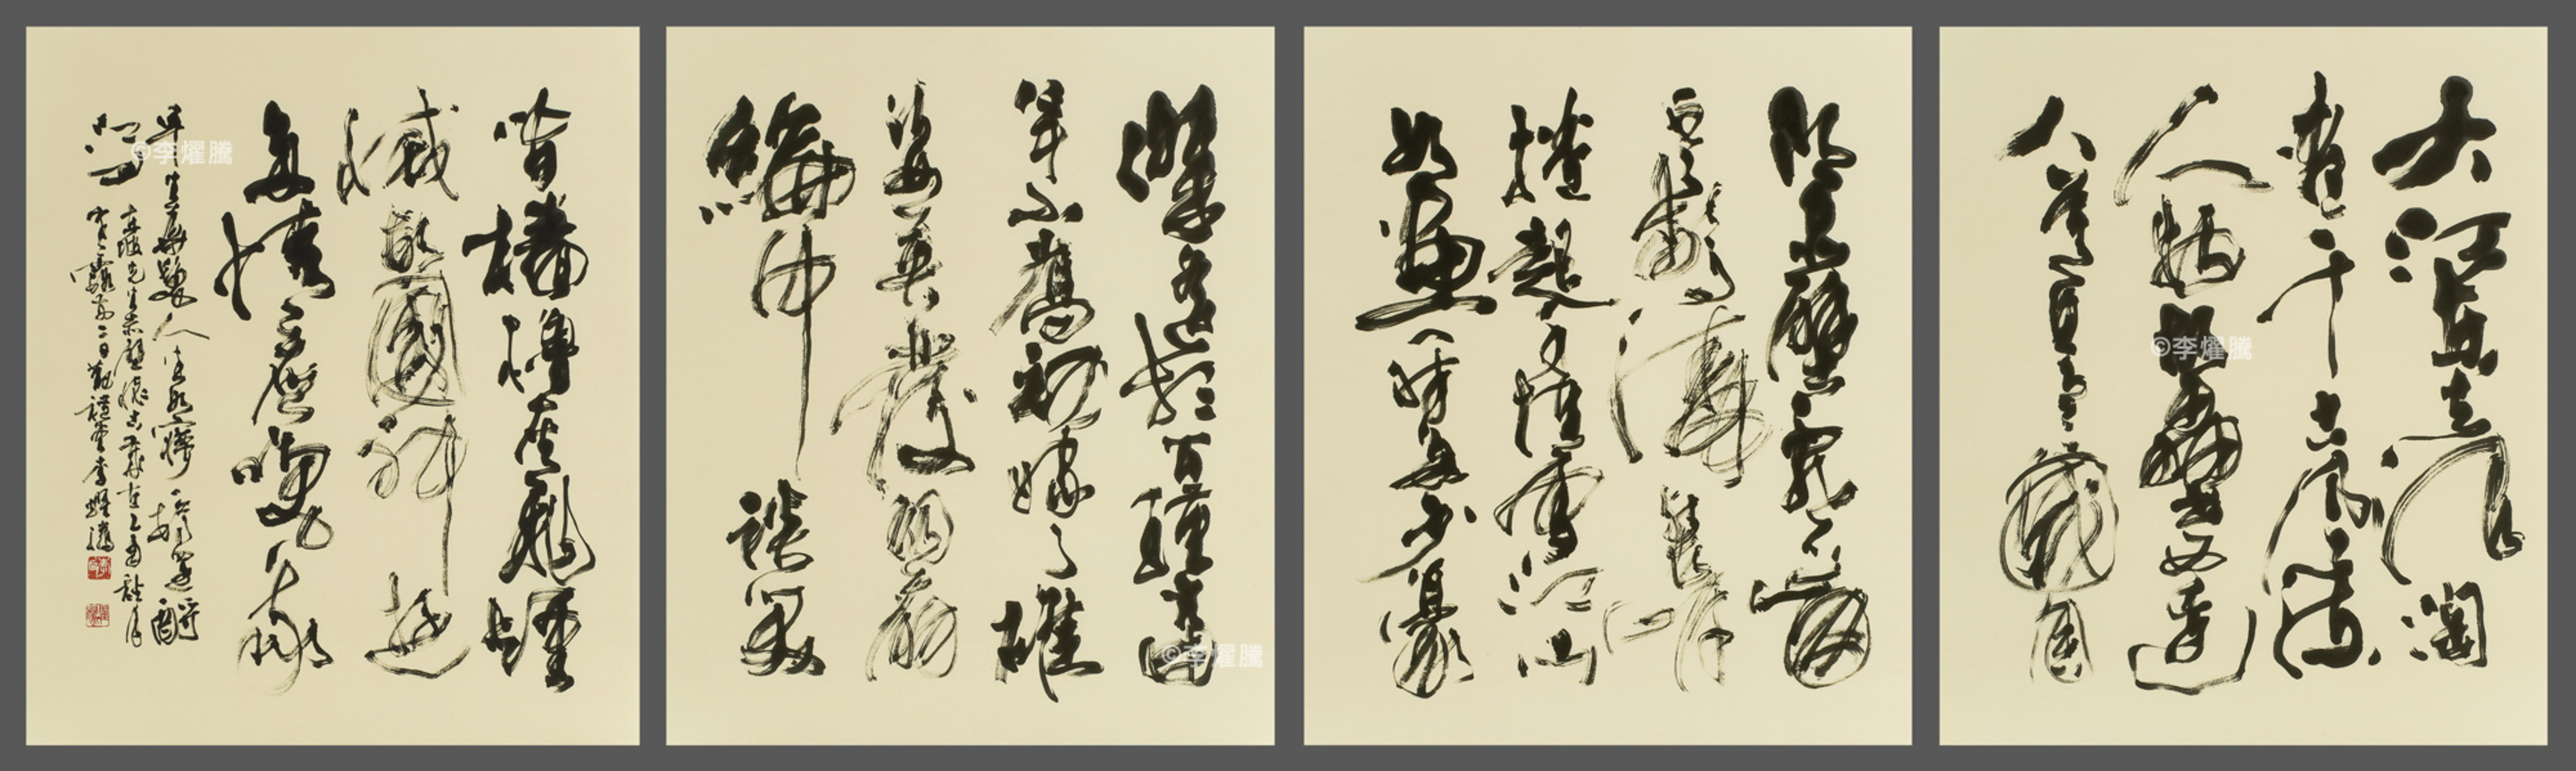 大江東去浪淘
盡千古風流
人物故壘西邊
人道是三國周
郎赤壁亂石崩
雲驚濤裂岸
捲起千堆雪江山
如畫一時多少豪
傑遙想公瑾當
年小喬初嫁了雄
姿英發羽扇
綸巾談笑
間檣櫓灰飛煙
滅故國神遊
多情應笑我
早生華髮人生如夢一樽還酹
江月
東坡先生赤壁懷古歲在乙未
寒露前二日李燿騰
©李燿騰
©李燿騰
©李燿騰